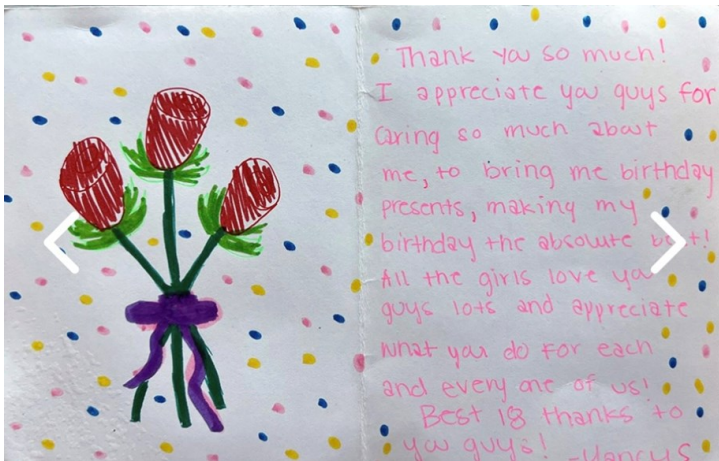 Thank you so much!
I appreciate you guys for
caring so much about
me, to bring me birthday
presents, making my
birthday the absolute
All the girls love you
guys lots and appreciate
what you do for each
and every one of us!
Best 18 thanks to
you guys!